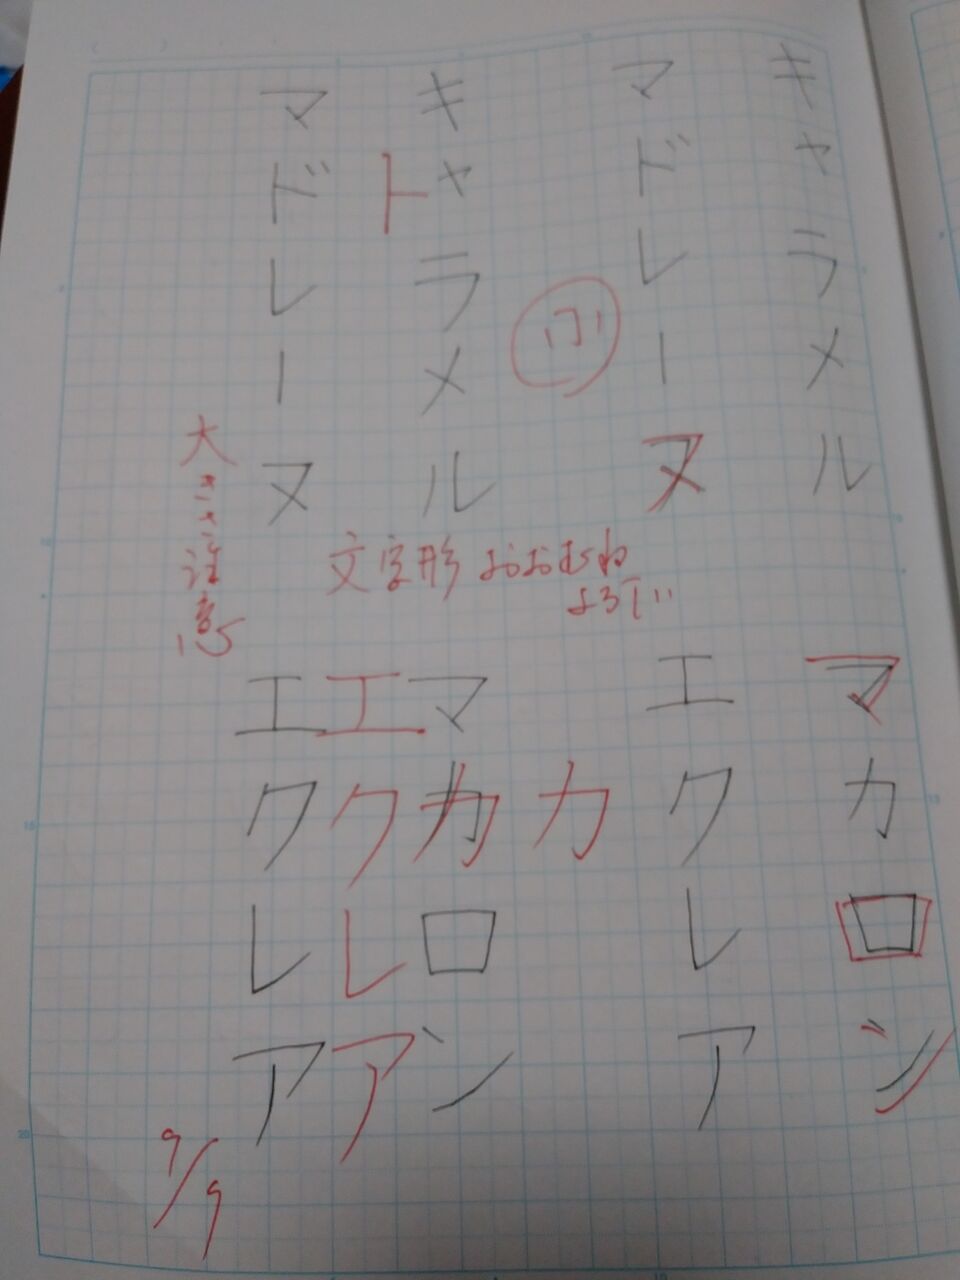 キャラメル
マドレーヌ
キャラメル
ト
マドレーヌ
文字形 おおむね
よろしい
大きさ注意
マカロン
エクレア
カ
マカロン
エクレア
エクレア
9/9